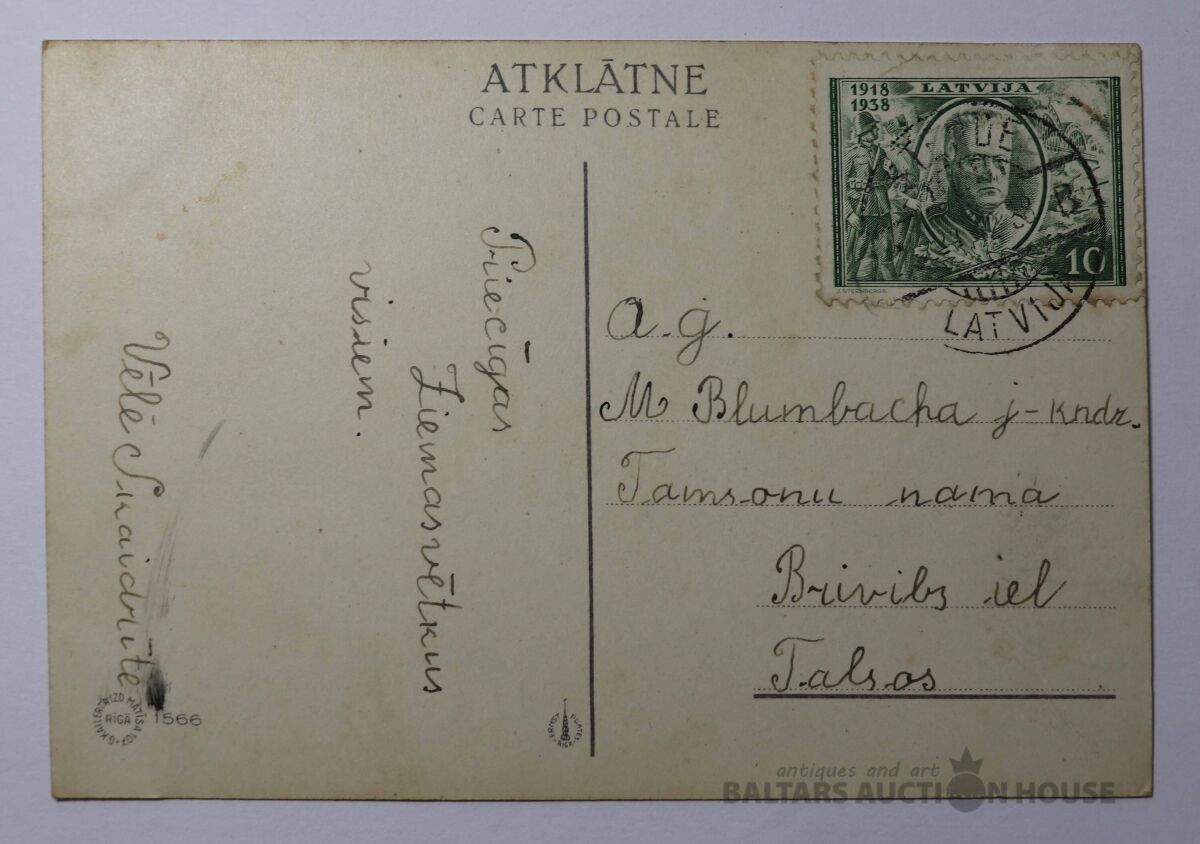 ATKLĀTNE
CARTE POSTALE
1918 LATVIJA
1938
10
LATVIJA
Priecīgas
Ziemasvētkus
visiem.
Vēlē Skaidrīte
A. g.
M Blumbacha j-kndz.
Tamsonu nama
Brivibs iel
Talsos
RĪGĀ
1566
antiques and art
BALTARS AUCTION HOUSE